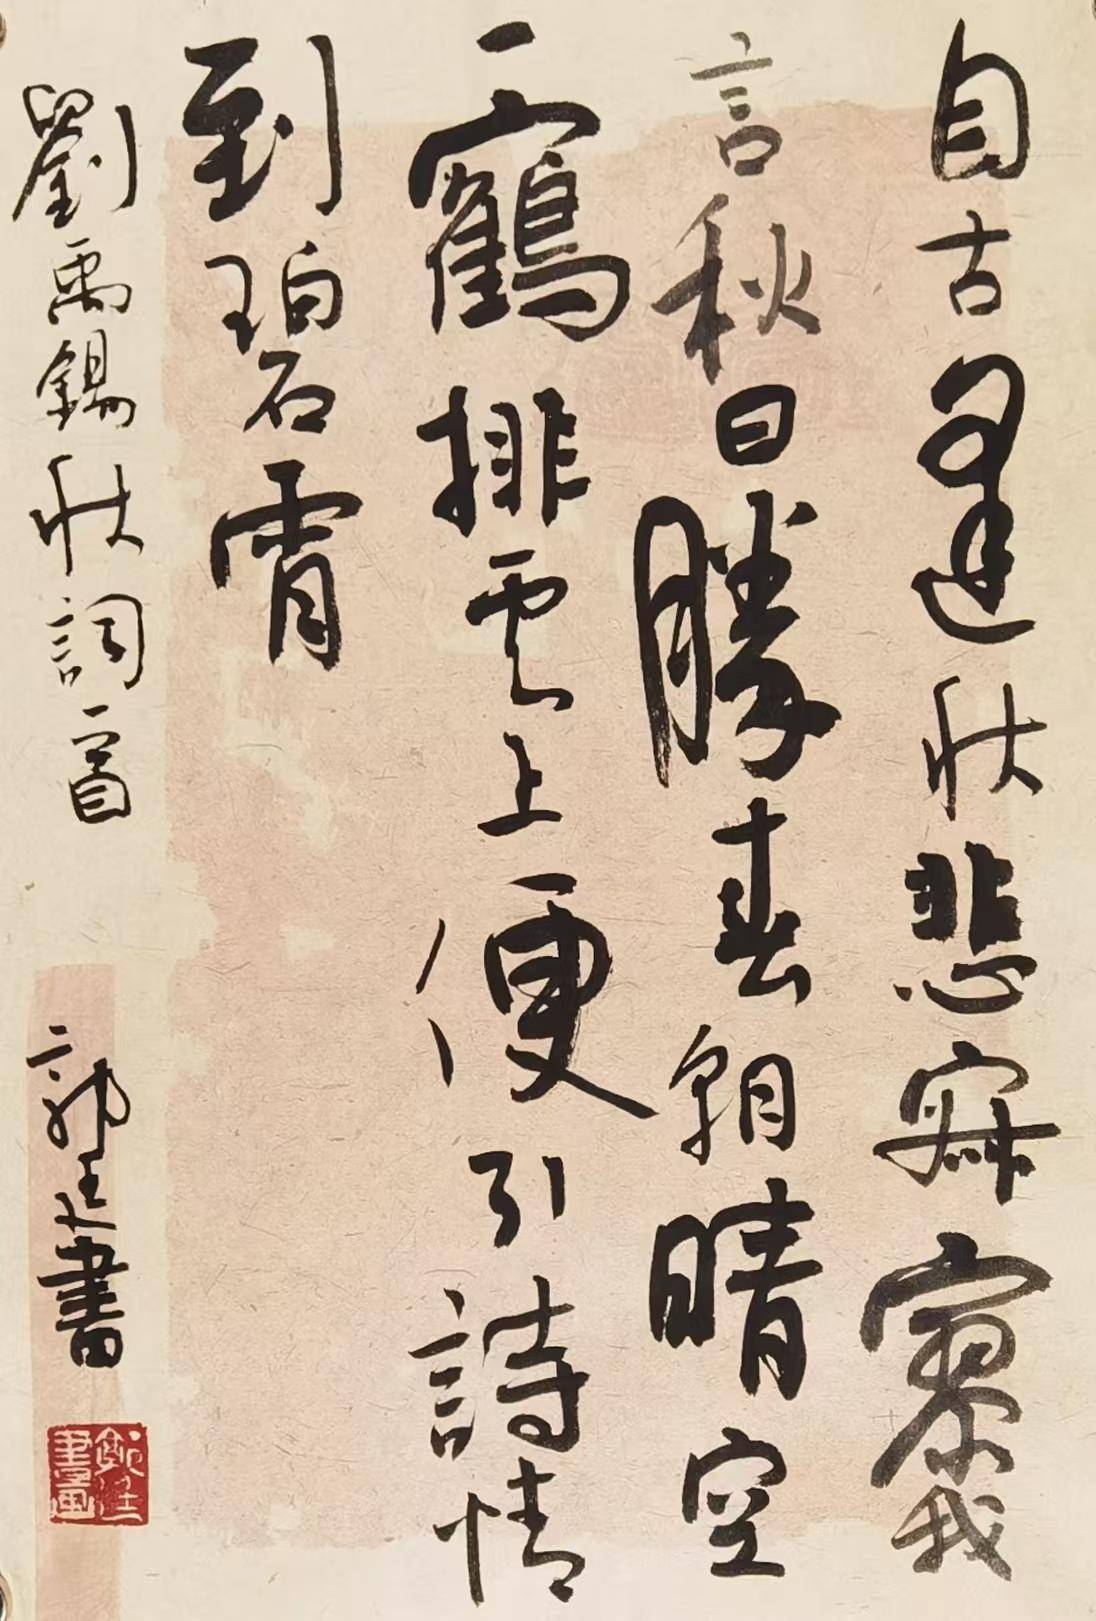 自古逢秋悲寂寥我
言秋日勝春朝晴空
一鶴排雲上便引詩情
到碧霄
劉禹錫秋詞一首
郭書
書畫